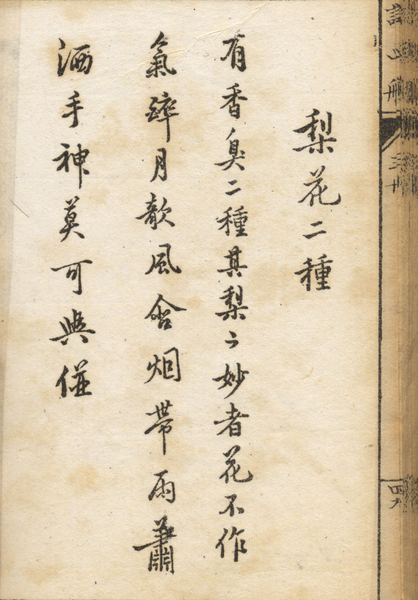 梨花二種
有香臭二種其梨之妙者花不作
氣醉月欹風含烟帶雨蕭
洒手神莫可與倂
四九